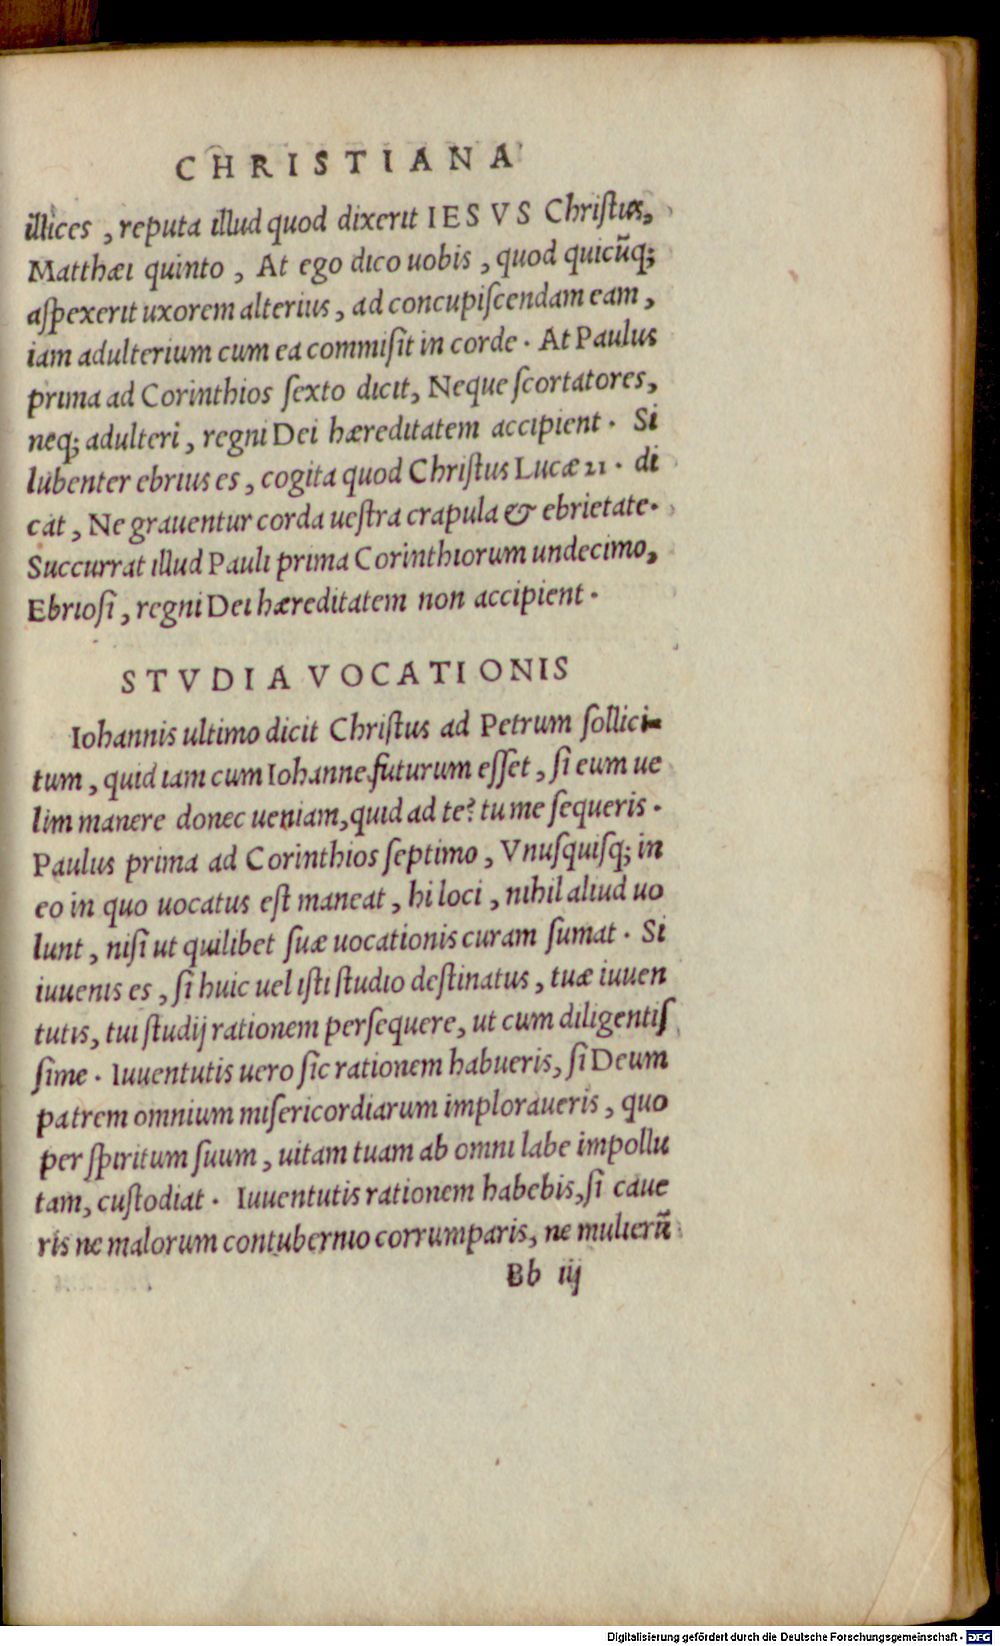 CHRISTIANA
illices, reputa illud quod dixerit IESVS Chriſtus,
Matthæi quinto, At ego dico uobis, quod quicūq;
aſpexerit uxorem alterius, ad concupiſcendam eam,
iam adulterium cum ea commiſit in corde. At Paulus
prima ad Corinthios ſexto dicit, Neque ſcortatores,
neq; adulteri, regni Dei hæreditatem accipient. Si
lubenter ebrius es, cogita quod Chriſtus Lucæ 21. di
cat, Ne grauentur corda ueſtra crapula & ebrietate.
Succurrat illud Pauli prima Corinthiorum undecimo,
Ebrioſi, regni Dei hæreditatem non accipient.
STVDIA VOCATIONIS
Iohannis ultimo dicit Chriſtus ad Petrum ſollici-
tum, quid iam cum Iohanne futurum eſſet, ſi eum ue
lim manere donec ueniam, quid ad te? tu me ſequeris.
Paulus prima ad Corinthios ſeptimo, Vnuſquiſq; in
eo in quo uocatus eſt maneat, hi loci, nihil aliud uo
lunt, niſi ut quilibet ſuæ uocationis curam ſumat. Si
iuuenis es, ſi huic uel iſti ſtudio deſtinatus, tuæ iuuen
tutis, tui ſtudij rationem perſequere, ut cum diligentiſ
ſime. Iuuentutis uero ſic rationem habueris, ſi Deum
patrem omnium miſericordiarum imploraueris, quo
per ſpiritum ſuum, uitam tuam ab omni labe impollu
tam, cuſtodiat. Iuuentutis rationem habebis, ſi caue
ris ne malorum contubernio corrumparis, ne mulierū
Bb iij
Digitalisierung gefördert durch die Deutsche Forschungsgemeinschaft - DFG